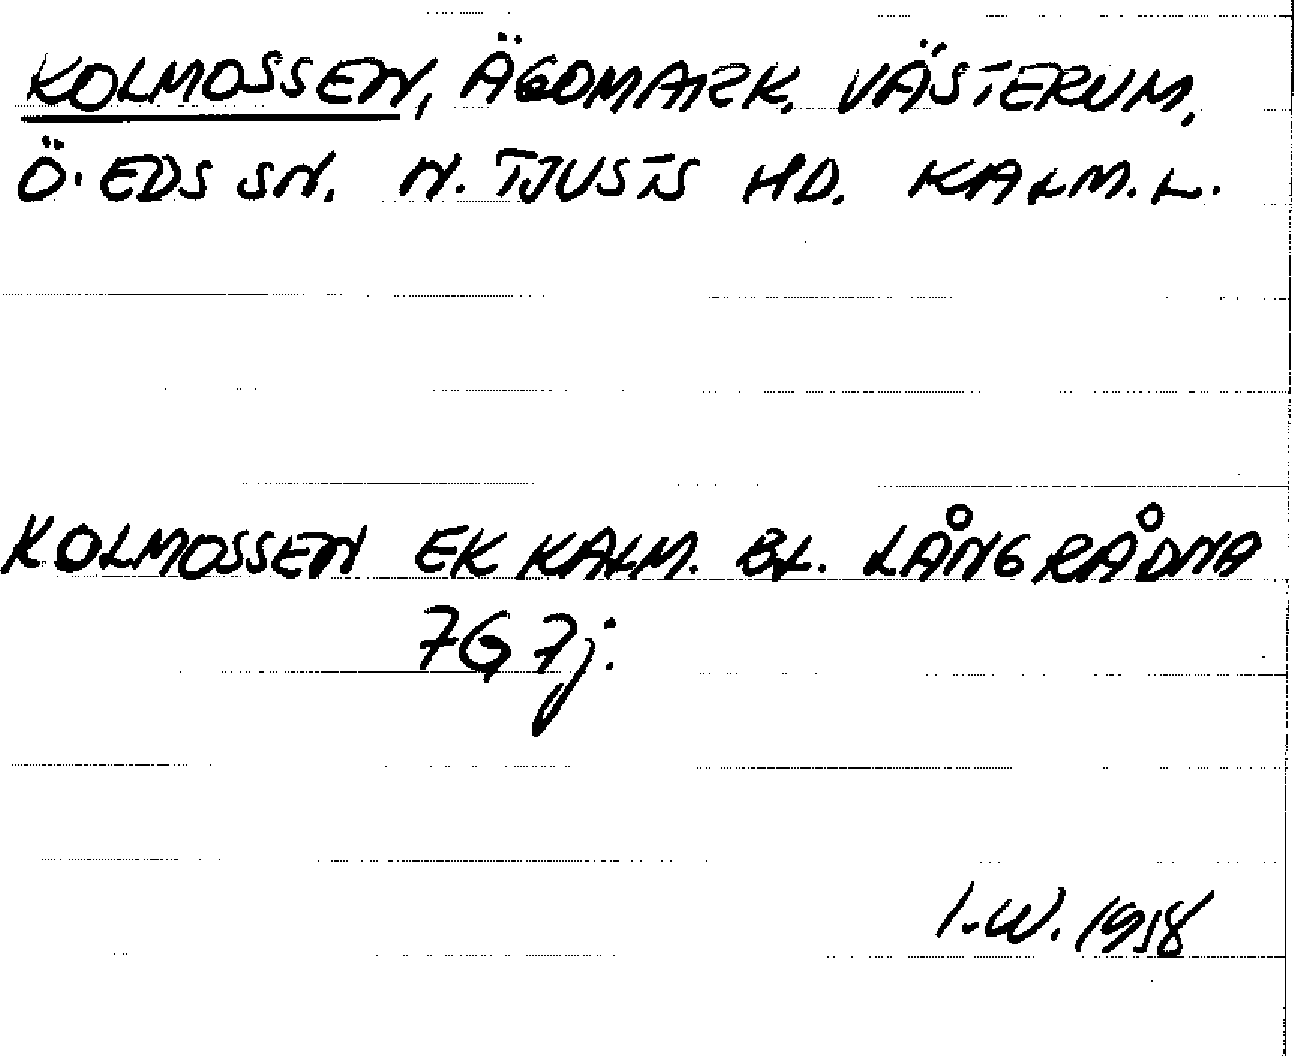 KOLMOSSEN, ÄGOMARK, VÄSTERUM,
Ö. EDS SN. N. TJUSTS HD. KALM. L.
KOLMOSSEN EK KALM. BL. LÅNGRÅDNA
7G 7j.
I.W. 1958